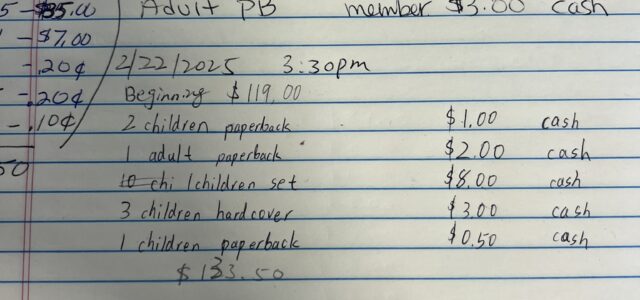 5 - $35.00 Adult PB member $3.00 cash
- $7.00
- .20¢ 2/22/2025 3:30pm
- .20¢ Beginning $119.00
- .10¢ 2 children paperback $1.00 cash
1 adult paperback $2.00 cash
50 1 children set $8.00 cash
3 children hardcover $3.00 cash
1 children paperback $0.50 cash
$133.50